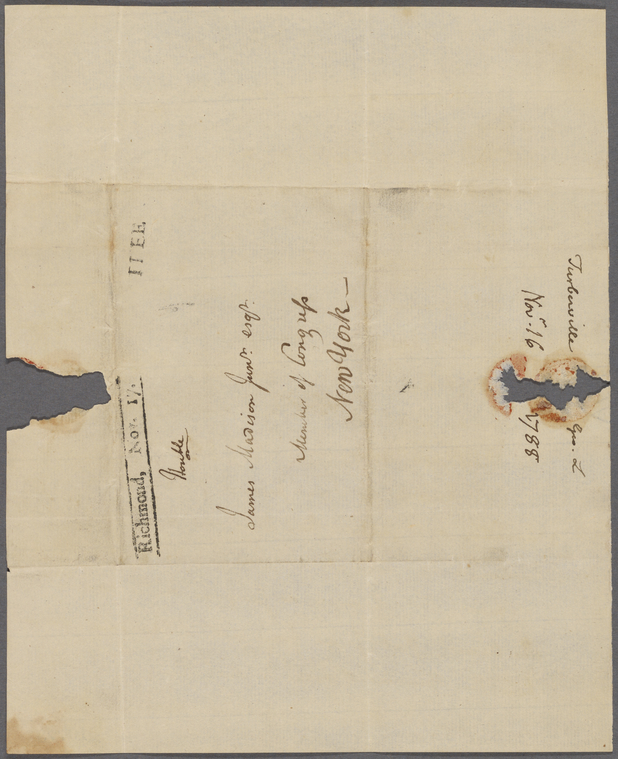 Richmond, Nov. 17.
FREE
Honble
James Madison Junr. esqr.
Member of Congress
New York —
Turberville Geo. L
Novr. 16 1788